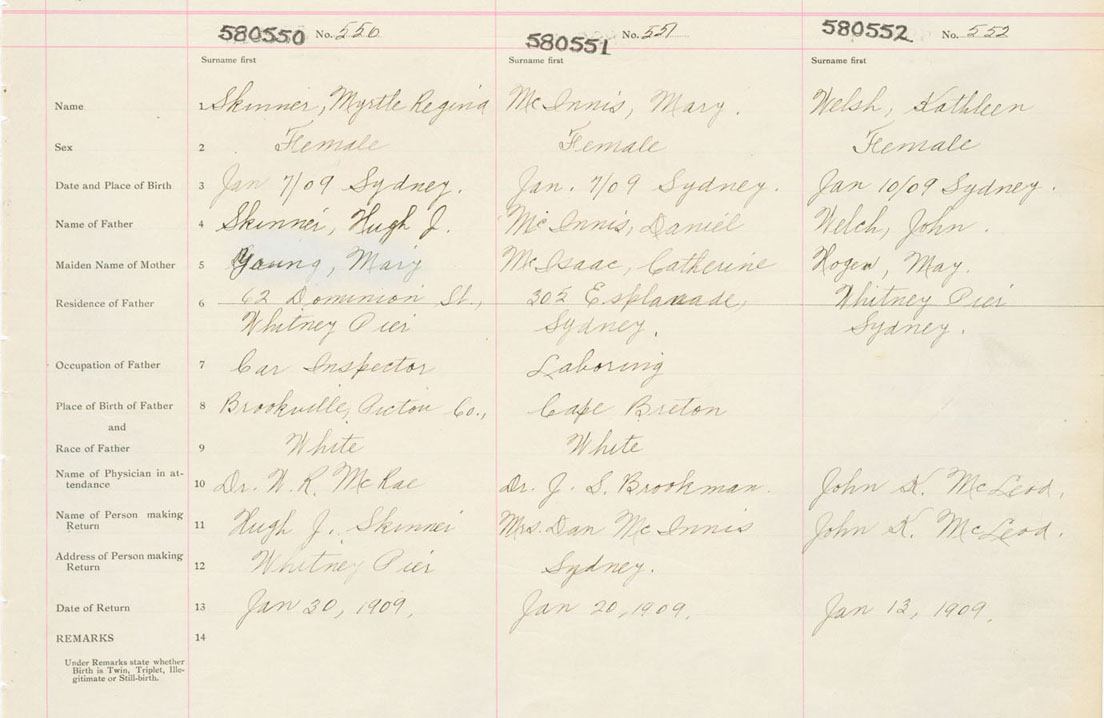 580550 No. 550 580551 No. 551 580552 No. 552
Surname first Surname first Surname first
Name 1 Skinner, Myrtle Regina Mc Innis, Mary. Welsh, Kathleen
Sex 2 Female Female Female
Date and Place of Birth 3 Jan 7/09 Sydney. Jan. 7/09 Sydney. Jan 10/09 Sydney.
Name of Father 4 Skinner, Hugh J. Mc Innis, Daniel Welch, John.
Maiden Name of Mother 5 Young, Mary Mc Isaac, Catherine Hogen, May.
Residence of Father 6 62 Dominion St., 305 Esplanade, Whitney Pier
Whitney Pier Sydney. Sydney.
Occupation of Father 7 Car Inspector Laboring
Place of Birth of Father 8 Brookville, Pictou Co., Cape Breton
and
Race of Father 9 White White
Name of Physician in at-
tendance 10 Dr. W. R. McRae Dr. J. S. Brookman. John K. McLeod.
Name of Person making
Return 11 Hugh J. Skinner Mrs. Dan Mc Innis John K. McLeod.
Address of Person making
Return 12 Whitney Pier Sydney.
Date of Return 13 Jan 30, 1909. Jan 20, 1909. Jan 13, 1909.
REMARKS 14
Under Remarks state whether
Birth is Twin, Triplet, Ille-
gitimate or Still-birth.